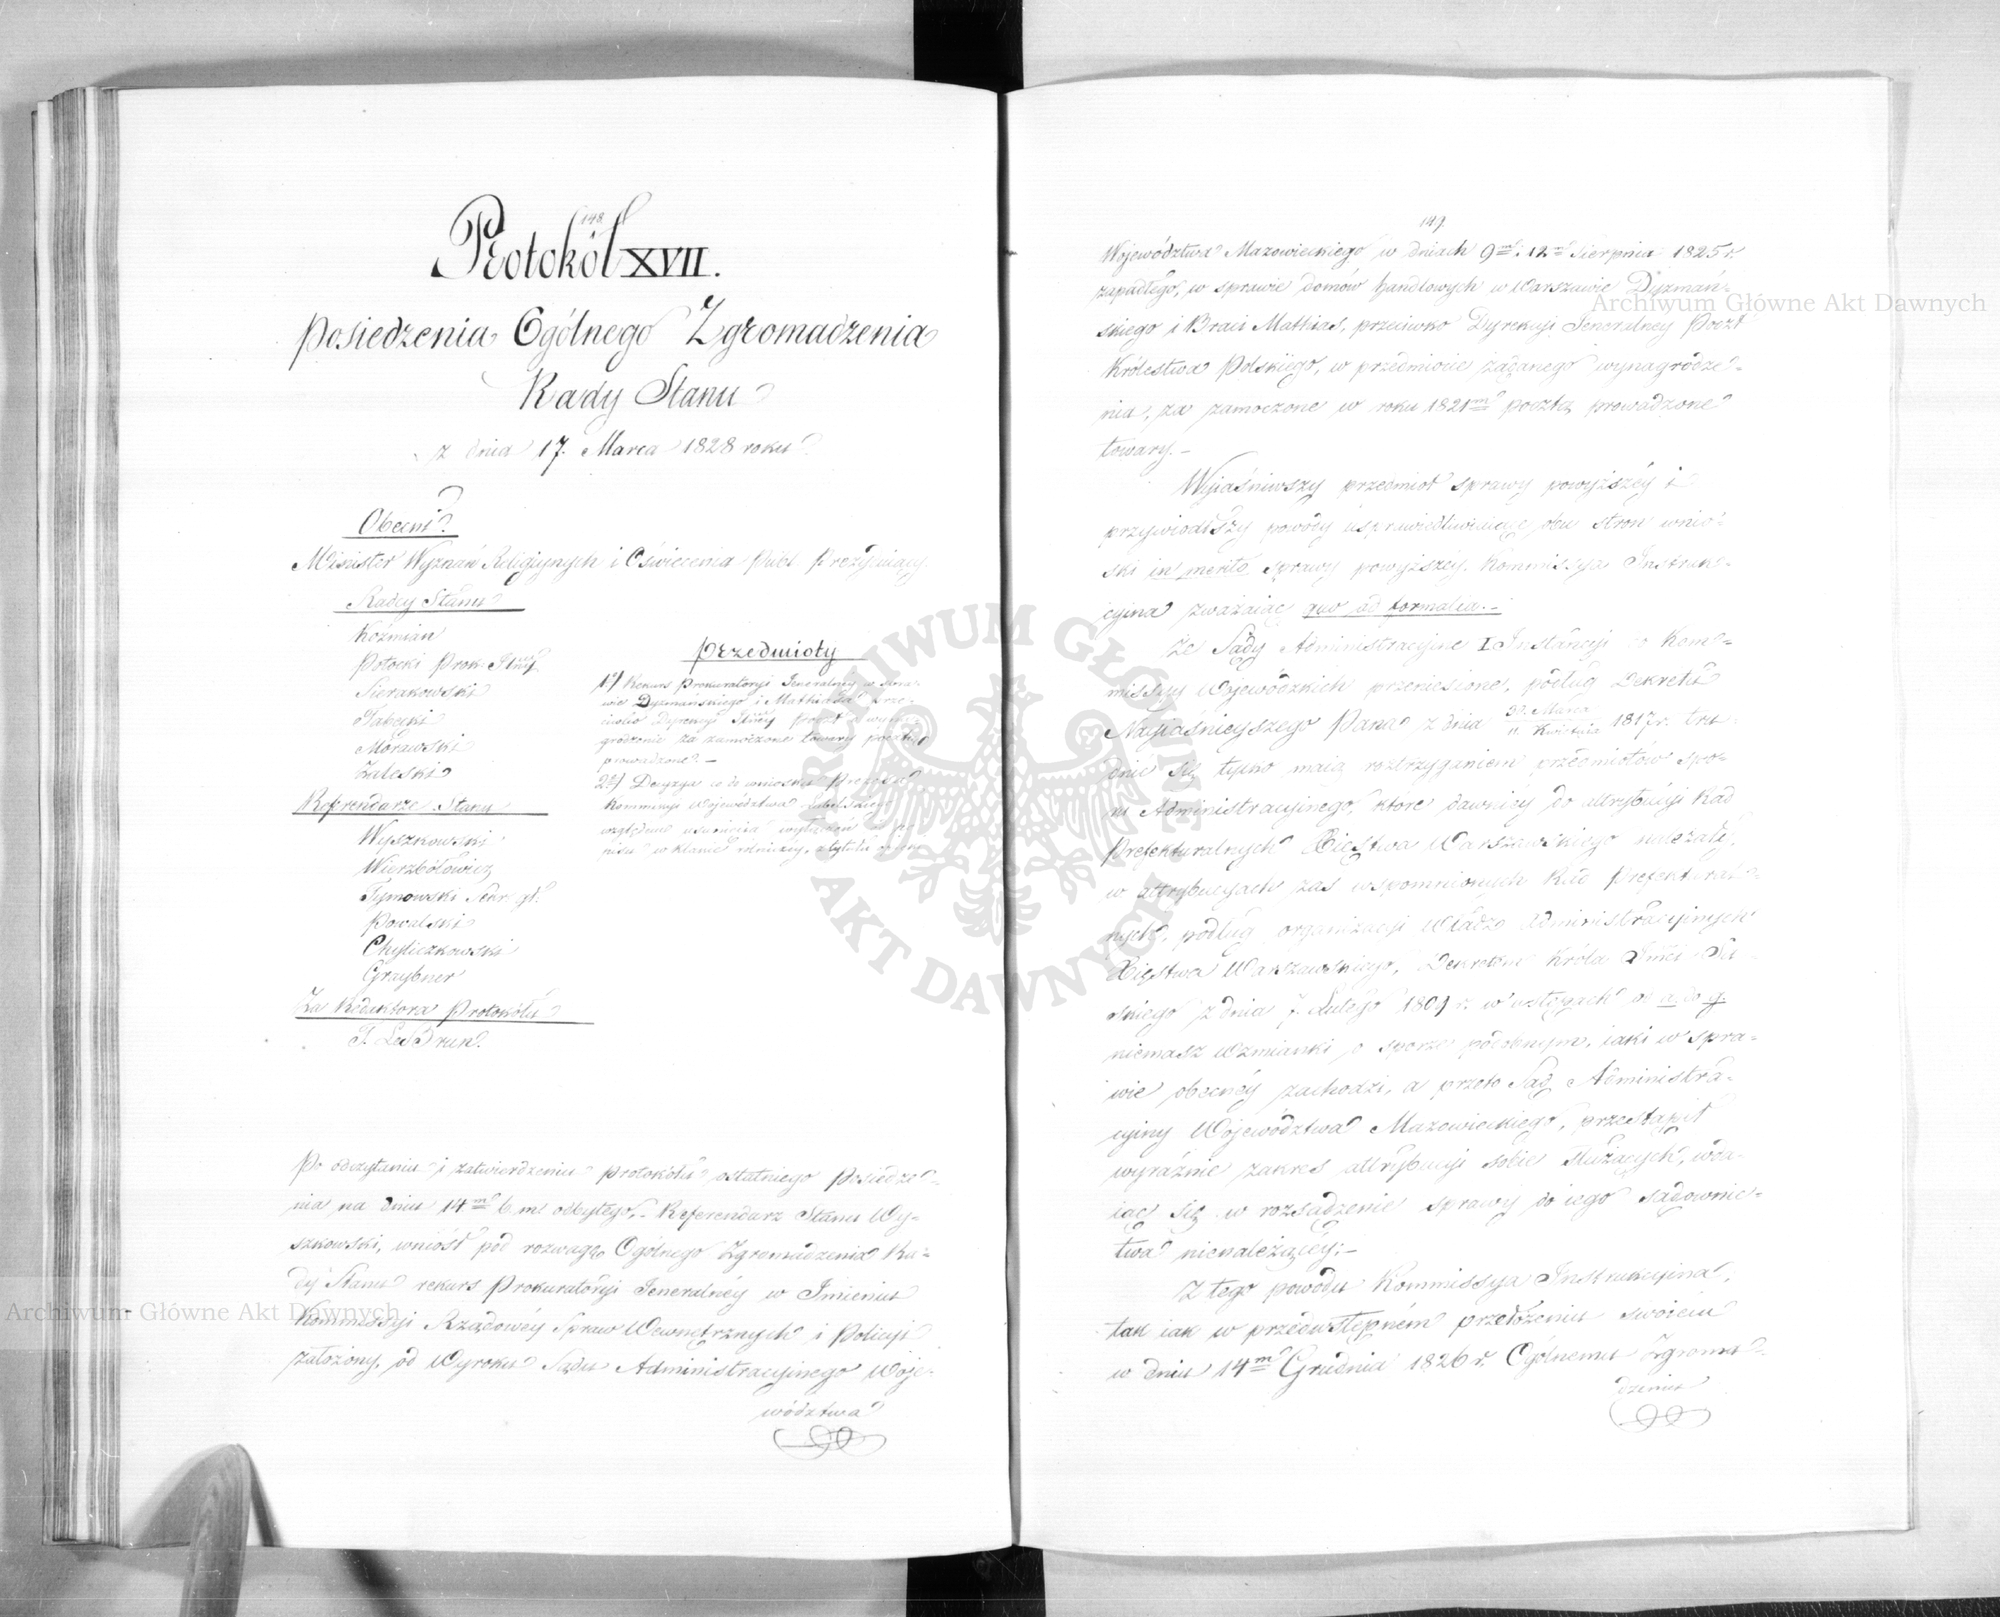 148.
Protokół XVII.
Posiedzenia Ogólnego Zgromadzenia
Rady Stanu
z dnia 17. Marca 1828 roku
Obecni
Minister Wyznań Religijnych i Oświecenia Publ. Prezyduiący
Radcy Stanu
Koźmian
Potocki Prok.
Sierakowski
Tabęcki
Morawski
Zaleski
Referendarze Stanu
Wyszkowski
Wierzbołowicz
Tymowski Sekr. gł.
Powalski
Chyliczkowski
Graybner
Za Redaktora Protokołu
T. Le Brun.
Przedmioty
1o/ Rekurs Prokuratoryi Jeneralney w spra-
wie Dyzmańskiego i Mathiasa prze-
ciwko Dyrekcyi Jlney poczt o wyna-
grodzenie za zamoczone towary pocztą
prowadzone. —
2o/ Decyzya co do wniosku Prezesa
Kommissyi Województwa Lubelskiego
względem usunięcia
w klanie rolniczy, z tytułu
Po odczytaniu i zatwierdzeniu protokółu ostatniego Posiedze-
nia na dniu 14m b. m. odbytego, - Referendarz Stanu Wy-
szkowski, wniósł pod rozwagę Ogólnego Zgromadzenia Ra-
dy Stanu rekurs Prokuratoryi Jeneralnéy w Imieniu
Kommissyi Rządowéy Spraw Wewnętrznych i Policyi
założony, od Wyroku Sądu Administracyinego Woje-
wództwa
149.
Województwa Mazowieckiego w dniach 9m i 12m Sierpnia 1825 r.
zapadłego, w sprawie domów handlowych w Warszawie Dyzmań-
skiego i Braci Mathias, przeciwko Dyrekcyi Jeneralney Poczt
Królestwa Polskiego, w przedmiocie żądanego wynagrodze-
nia, za zamoczone w roku 1821m pocztą prowadzone
towary. —
Wyiaśniwszy przedmiot sprawy powyższéy i
przywiodłszy powody usprawiedliwiaiące obu stron wnio-
ski in merito sprawy powyższéy Kommissya Instruk-
cyina zważaiąc quo ad formalia. —
Że Sądy Administracyine I Instancyi do Kom-
missyy Wojewódzkich przeniesione, podług Dekretu
Nayiaśnieyszego Pana z dnia 30. Marca / 11. Kwietnia 1817 r. tru-
dnić się tylko maią roztrzyganiem przedmiotów spo-
ru Administracyinego, które dawniéy do attrybucyi Rad
Prefekturalnych Xięstwa Warszawskiego należały,
w attrybucyach zaś wspomnionych Rad Prefektural-
nych, podług organizacyi Władz Administracyinych
Xięstwa Warszawskiego, Dekretem Króla Jmci Sa-
skiego z dnia 7. Lutego 1809 r. w ustępach od a. do g.
niemasz wzmianki o sporze podobnym, iaki w spra-
wie obecnéy zachodzi, a przeto Sąd Administra-
cyiny Województwa Mazowieckiego, przestąpił
wyraźnie zakres attrybucyi sobie służących, wda-
iąc się w rozsądzenie sprawy do iego sądownic-
twa nienależącéy; —
Z tego powodu Kommissya Instrukcyina,
tak iak w przedwstępném przełożeniu swoiém
w dniu 14m Grudnia 1826 r. Ogólnemu Zgroma-
dzeniu
ARCHIWUM GŁÓWNE AKT DAWNYCH
Archiwum Główne Akt Dawnych
Archiwum Główne Akt Dawnych